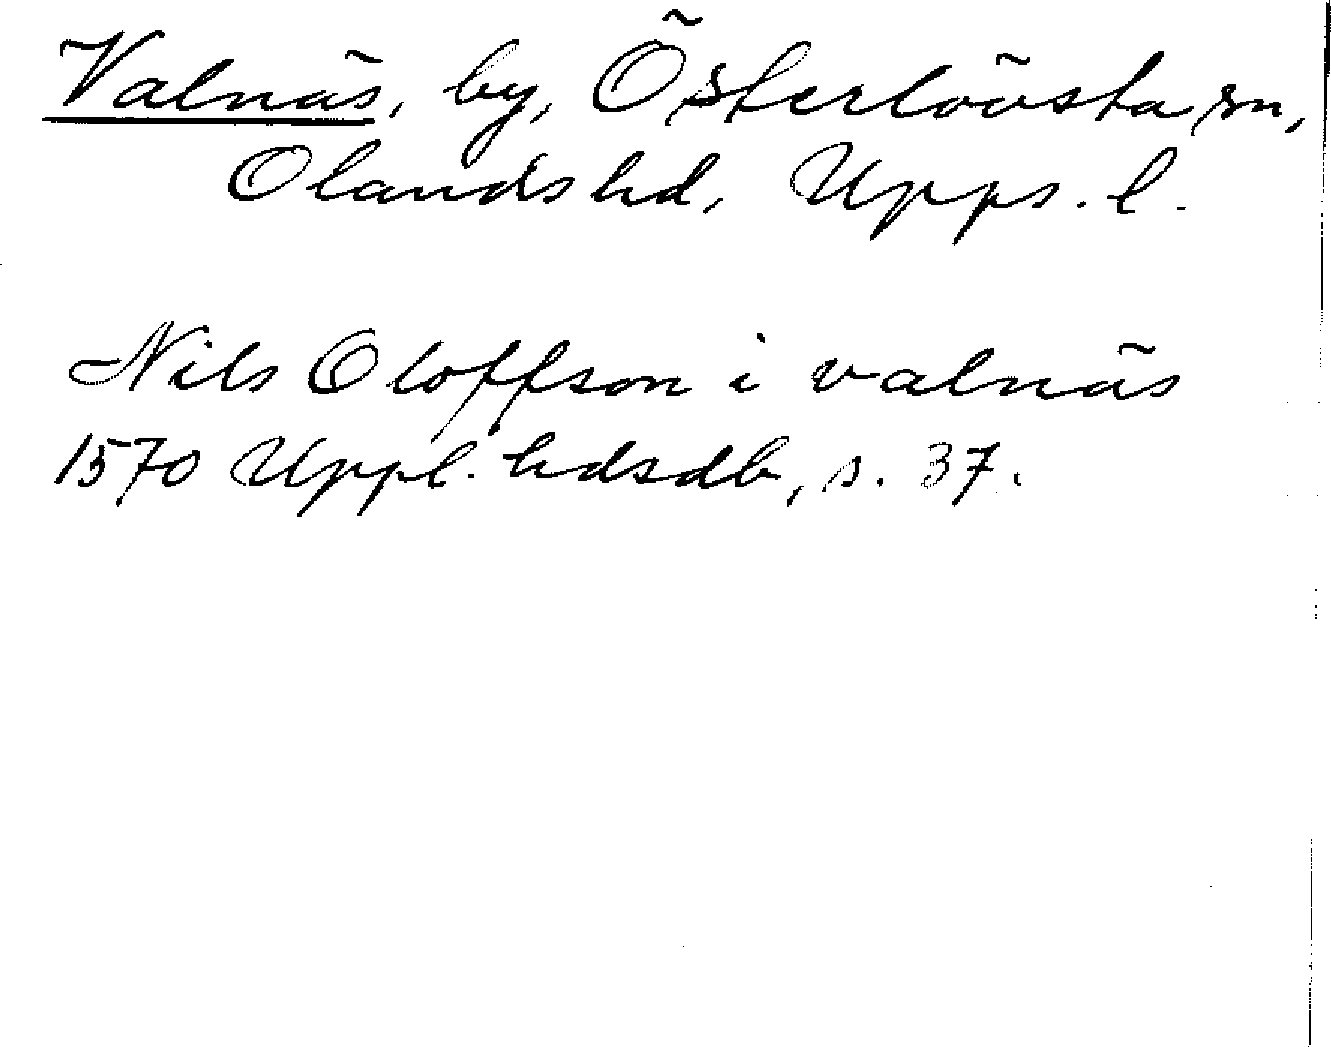 Valnäs, by, Österlövsta sn,
Olands hd, Upps. l.
Nils Oloffson i valnäs
1570 Uppl. hdsdb, s. 37.